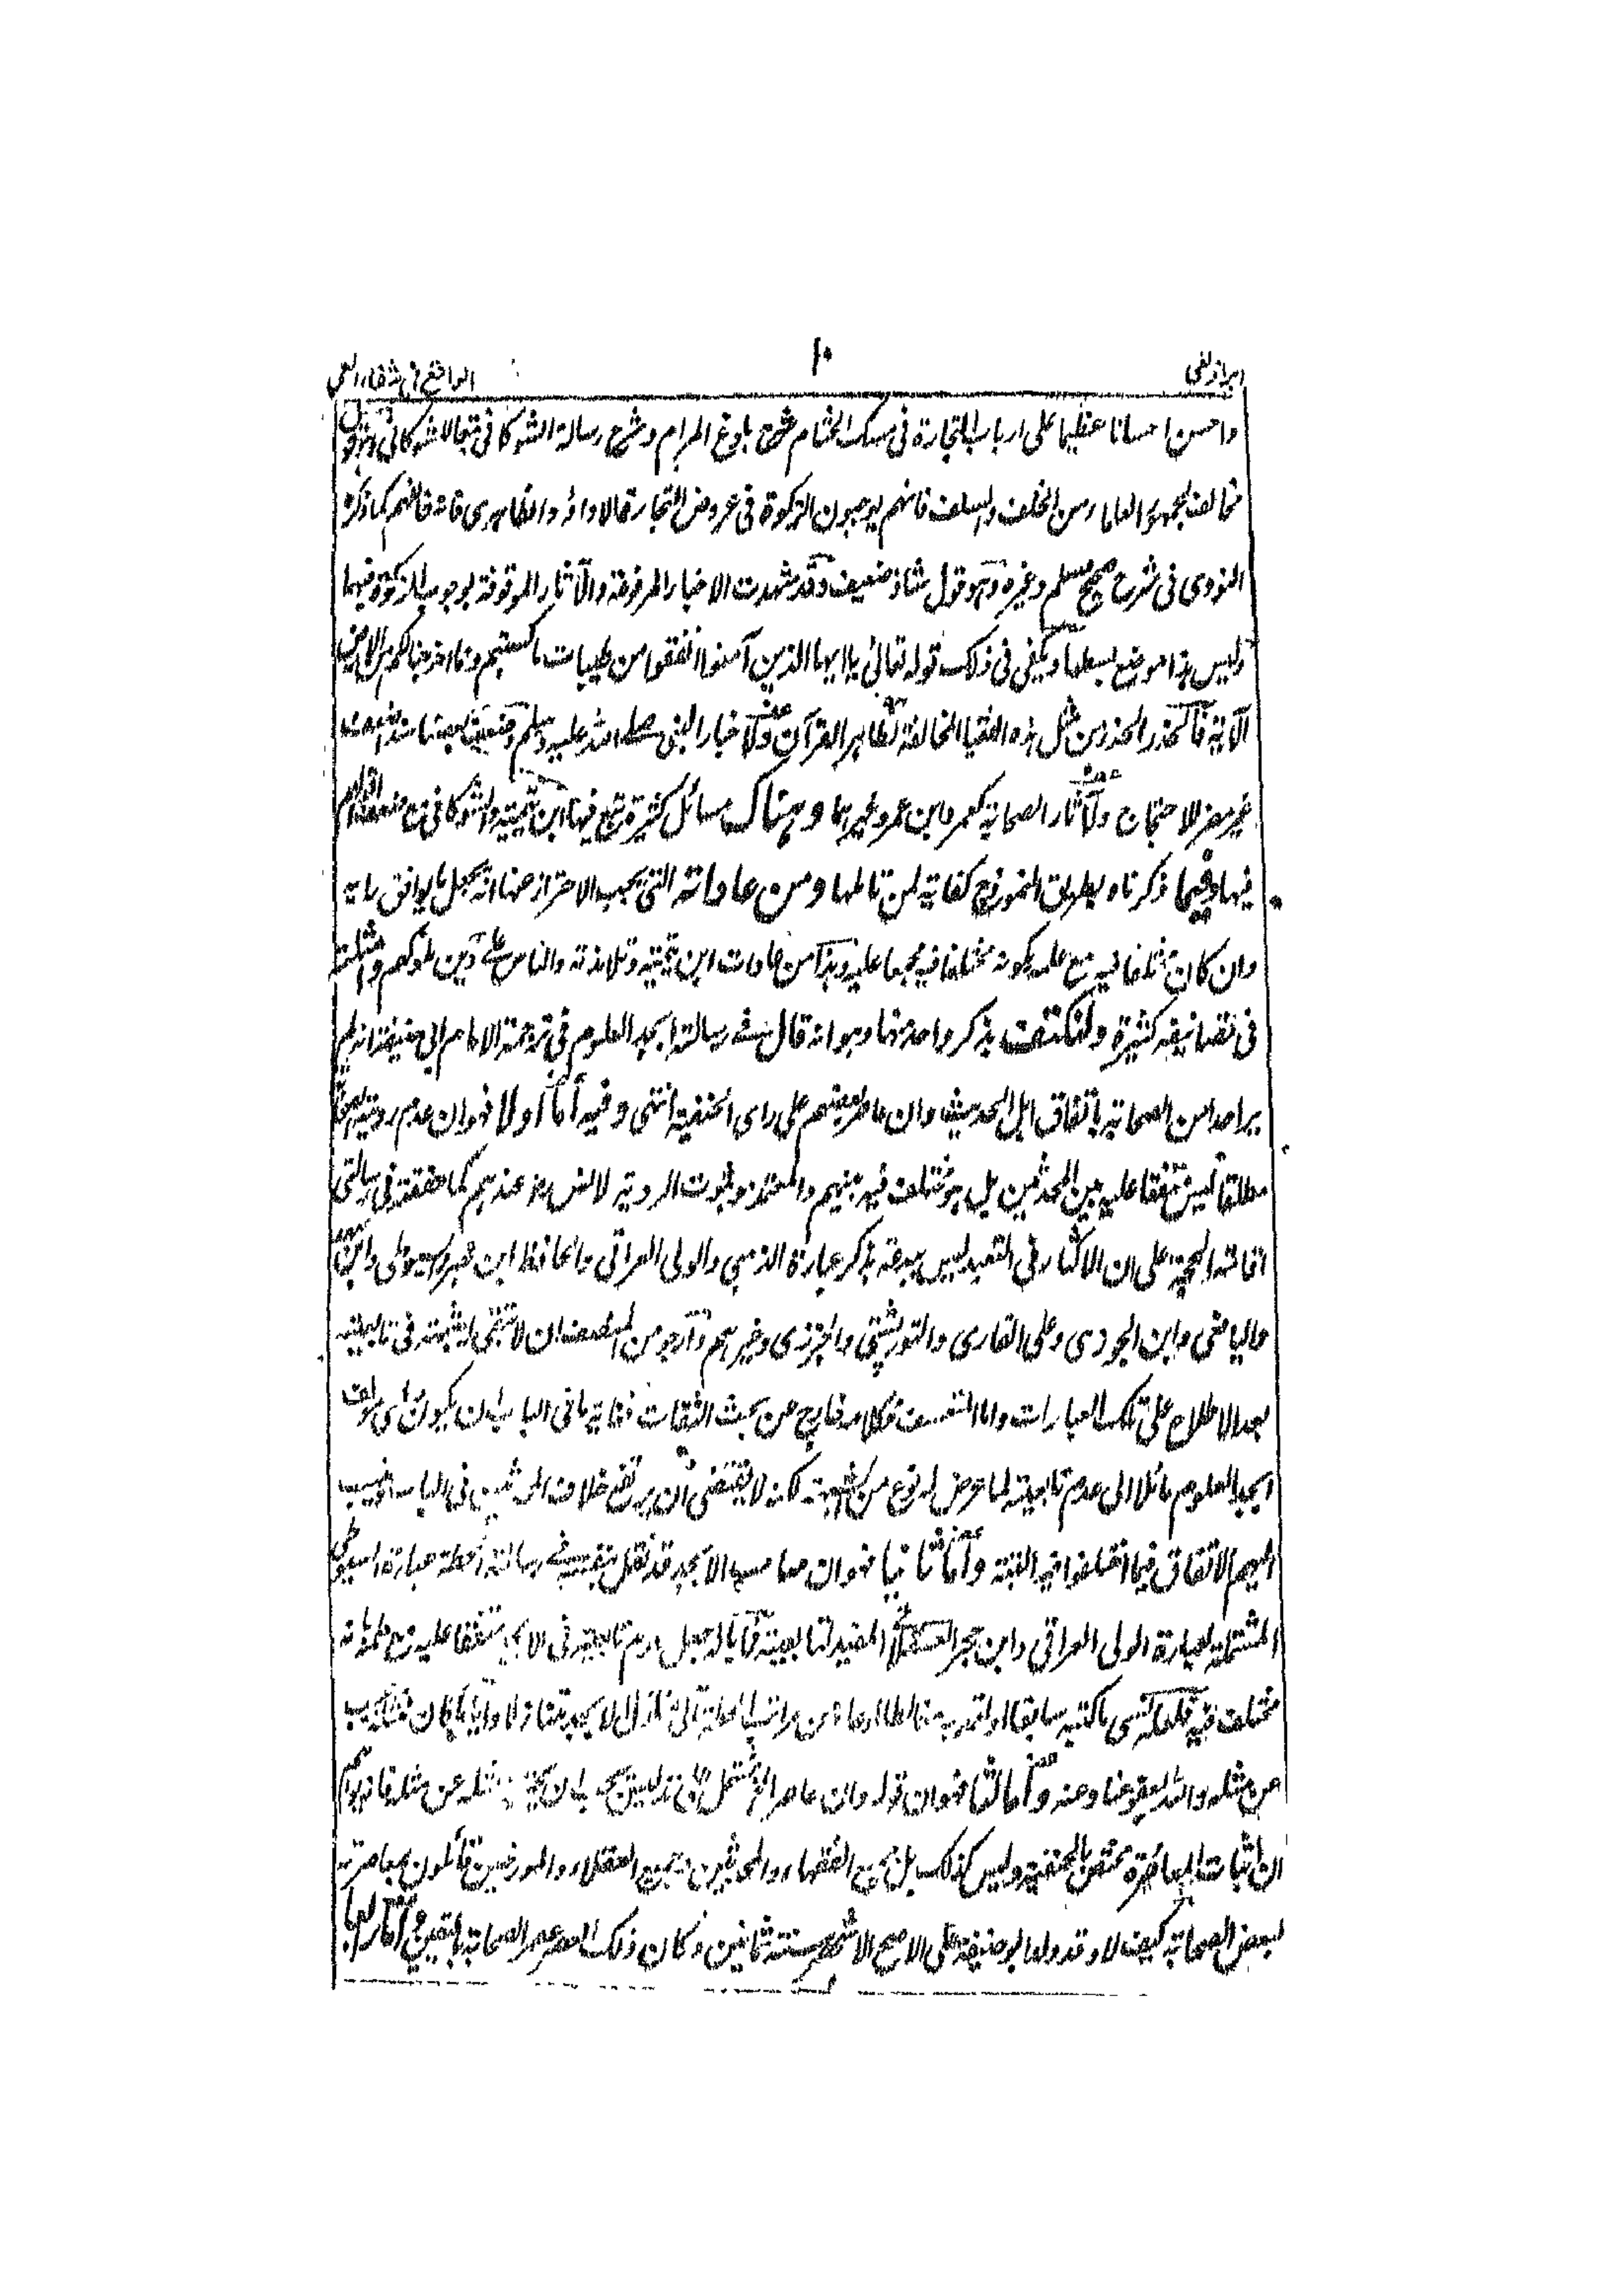 ابراز الغي ١٠ الواقع في شفاء العي
واحسن احسانا عظيما على ارباب التجارة في مسك الختام شرح بلوغ المرام وشرح رسالة الشوكاني تبعا لاشوكاني وهو قول
مخالف لجمهور العلماء من الخلف والسلف فانهم يوجبون الزكوة في عروض التجارة الا داؤد الظاهري فانه خالفهم كما ذكره
النووي في شرح صحيح مسلم وغيره وهو قول شاذ ضعيف وقد شهدت الاخبار المرفوعة والآثار الموقوفة لوجوب الزكوة فيها
وليس هذا موضع بسطها ويكفي في ذلك قوله تعالى يا ايها الذين آمنوا انفقوا من طيبات ما كسبتم ومما اخرجنا لكم من الارض
الآية فالحذر الحذر من مثل هذه الفتيا المخالفة لظاهر القرآن ولاخبار النبي صلى الله عليه وسلم وضعف بعضها سندا
غير مضر للاحتجاج ولآثار الصحابة كعمر وابن عمر وغيرهما وهناك مسائل كثيرة تبع فيها ابن تيمية والشوكاني مع ضعف
فيها وفيما ذكرناه بطريق النموذج كفاية لمن تاملها ومن عاداته التي يجب الاحتراز عنها انه يجعل ما يوافق رايه
وان كان مختلفا فيه مع علمه بكونه مختلفا فيه مجمعا عليه وهذا من عادات ابن تيمية وتلامذته والناس على دين ملوكهم وامثلته
في تصانيفه كثيرة ولنكتف بذكر واحد منها وهو انه قال في رسالته ابجد العلوم في ترجمة الامام ابي حنيفة انه لم
ير احدا من الصحابة باتفاق اهل الحديث وان عاصر بعضهم على راي الحنفية انتهى وفيه أما اولا فهو ان عدم رويته الصحابة
مطلقا ليس متفقا عليه بين المحدثين بل هو مختلف فيه بينهم والمعتمد هو ثبوت الروية لانس رضـ عندهم كما حققته في رسالتي
اقامة الحجة على ان الاكثار في التعبد ليس ببدعة بذكر عبارة الذهبي والولي العراقي والحافظ ابن حجر والسيوطي وابن
واليافعي وابن الجوزي وعلى القاري والتوربشتي والجزري وغيرهم وارجو من المنصف ان لا تبقى له شبهة في تابعيته
بعد الاطلاع على تلك العبارات واما المتعسف فكلامه خارج عن بحث الثقات وغاية ما في الباب ان يكون راى مؤلف
ابجد العلوم مائلا الى عدم تابعيته لما عرض له نوع من الشبهة لكنه لا يقتضي ان يرتفع خلاف المحدثين في الباب وينسب
اليهم الاتفاق فيما اختلفوا فيه البتة وأما ثانيا فهو ان صاحب الابجد قد نقل بنفسه في رسالته الحطة عبارة السيوطي
المشتملة لعبارة الولي العراقي وابن حجر العسقلاني المفيد لتابعيته فما باله جعل عدم تابعيته في الابجد متفقا عليه مع علمه بانه
مختلف فيه
عن مثله والله يعفو عنا وعنه وأما ثالثا فهو ان قوله وان عاصر الخ مشتمل على تدليس يجب ان
ان اثبات المعاصرة مختص بالحنفية وليس كذلك بل جميع الفقهاء والمحدثين وجميع العقلاء والمورخين قائلون بمعاصرته
لبعض الصحابة كيف لا وقد ولد ابو حنيفة على الاصح الاشهر سنة ثمانين وكان ذلك العصر عصر الصحابة باليقين